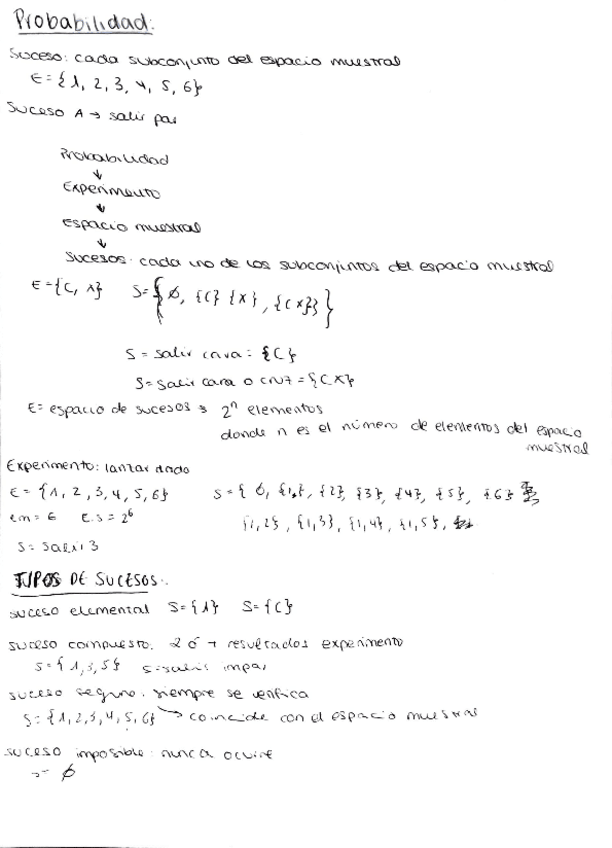 Probabilidad:
Suceso: cada subconjunto del espacio muestral
E = {1, 2, 3, 4, 5, 6}
Suceso A → salir par
Probabilidad
↓
Experimento
↓
espacio muestral
↓
Sucesos: cada uno de los subconjuntos del espacio muestral
E = {C, X} S = {∅, {C} {X}, {CX}}
S = salir cara: {C}
S = salir cara o cruz = {CX}
E = espacio de sucesos 2ⁿ elementos
donde n es el número de elementos del espacio
muestral
Experimento: lanzar dado
E = {1, 2, 3, 4, 5, 6} S = { ∅, {1}, {2}, {3}, {4}, {5}, {6}
em = 6 E.s = 2⁶ {1,2}, {1,3}, {1,4}, {1,5},
S = salir 3
TIPOS DE SUCESOS:
suceso elemental S = {1} S = {C}
suceso compuesto: 2 ó + resultados experimento
S = {1,3,5} S = salir impar
suceso seguro: siempre se verifica
S = {1,2,3,4,5,6} → coincide con el espacio muestral
suceso imposible: nunca ocurre
∅